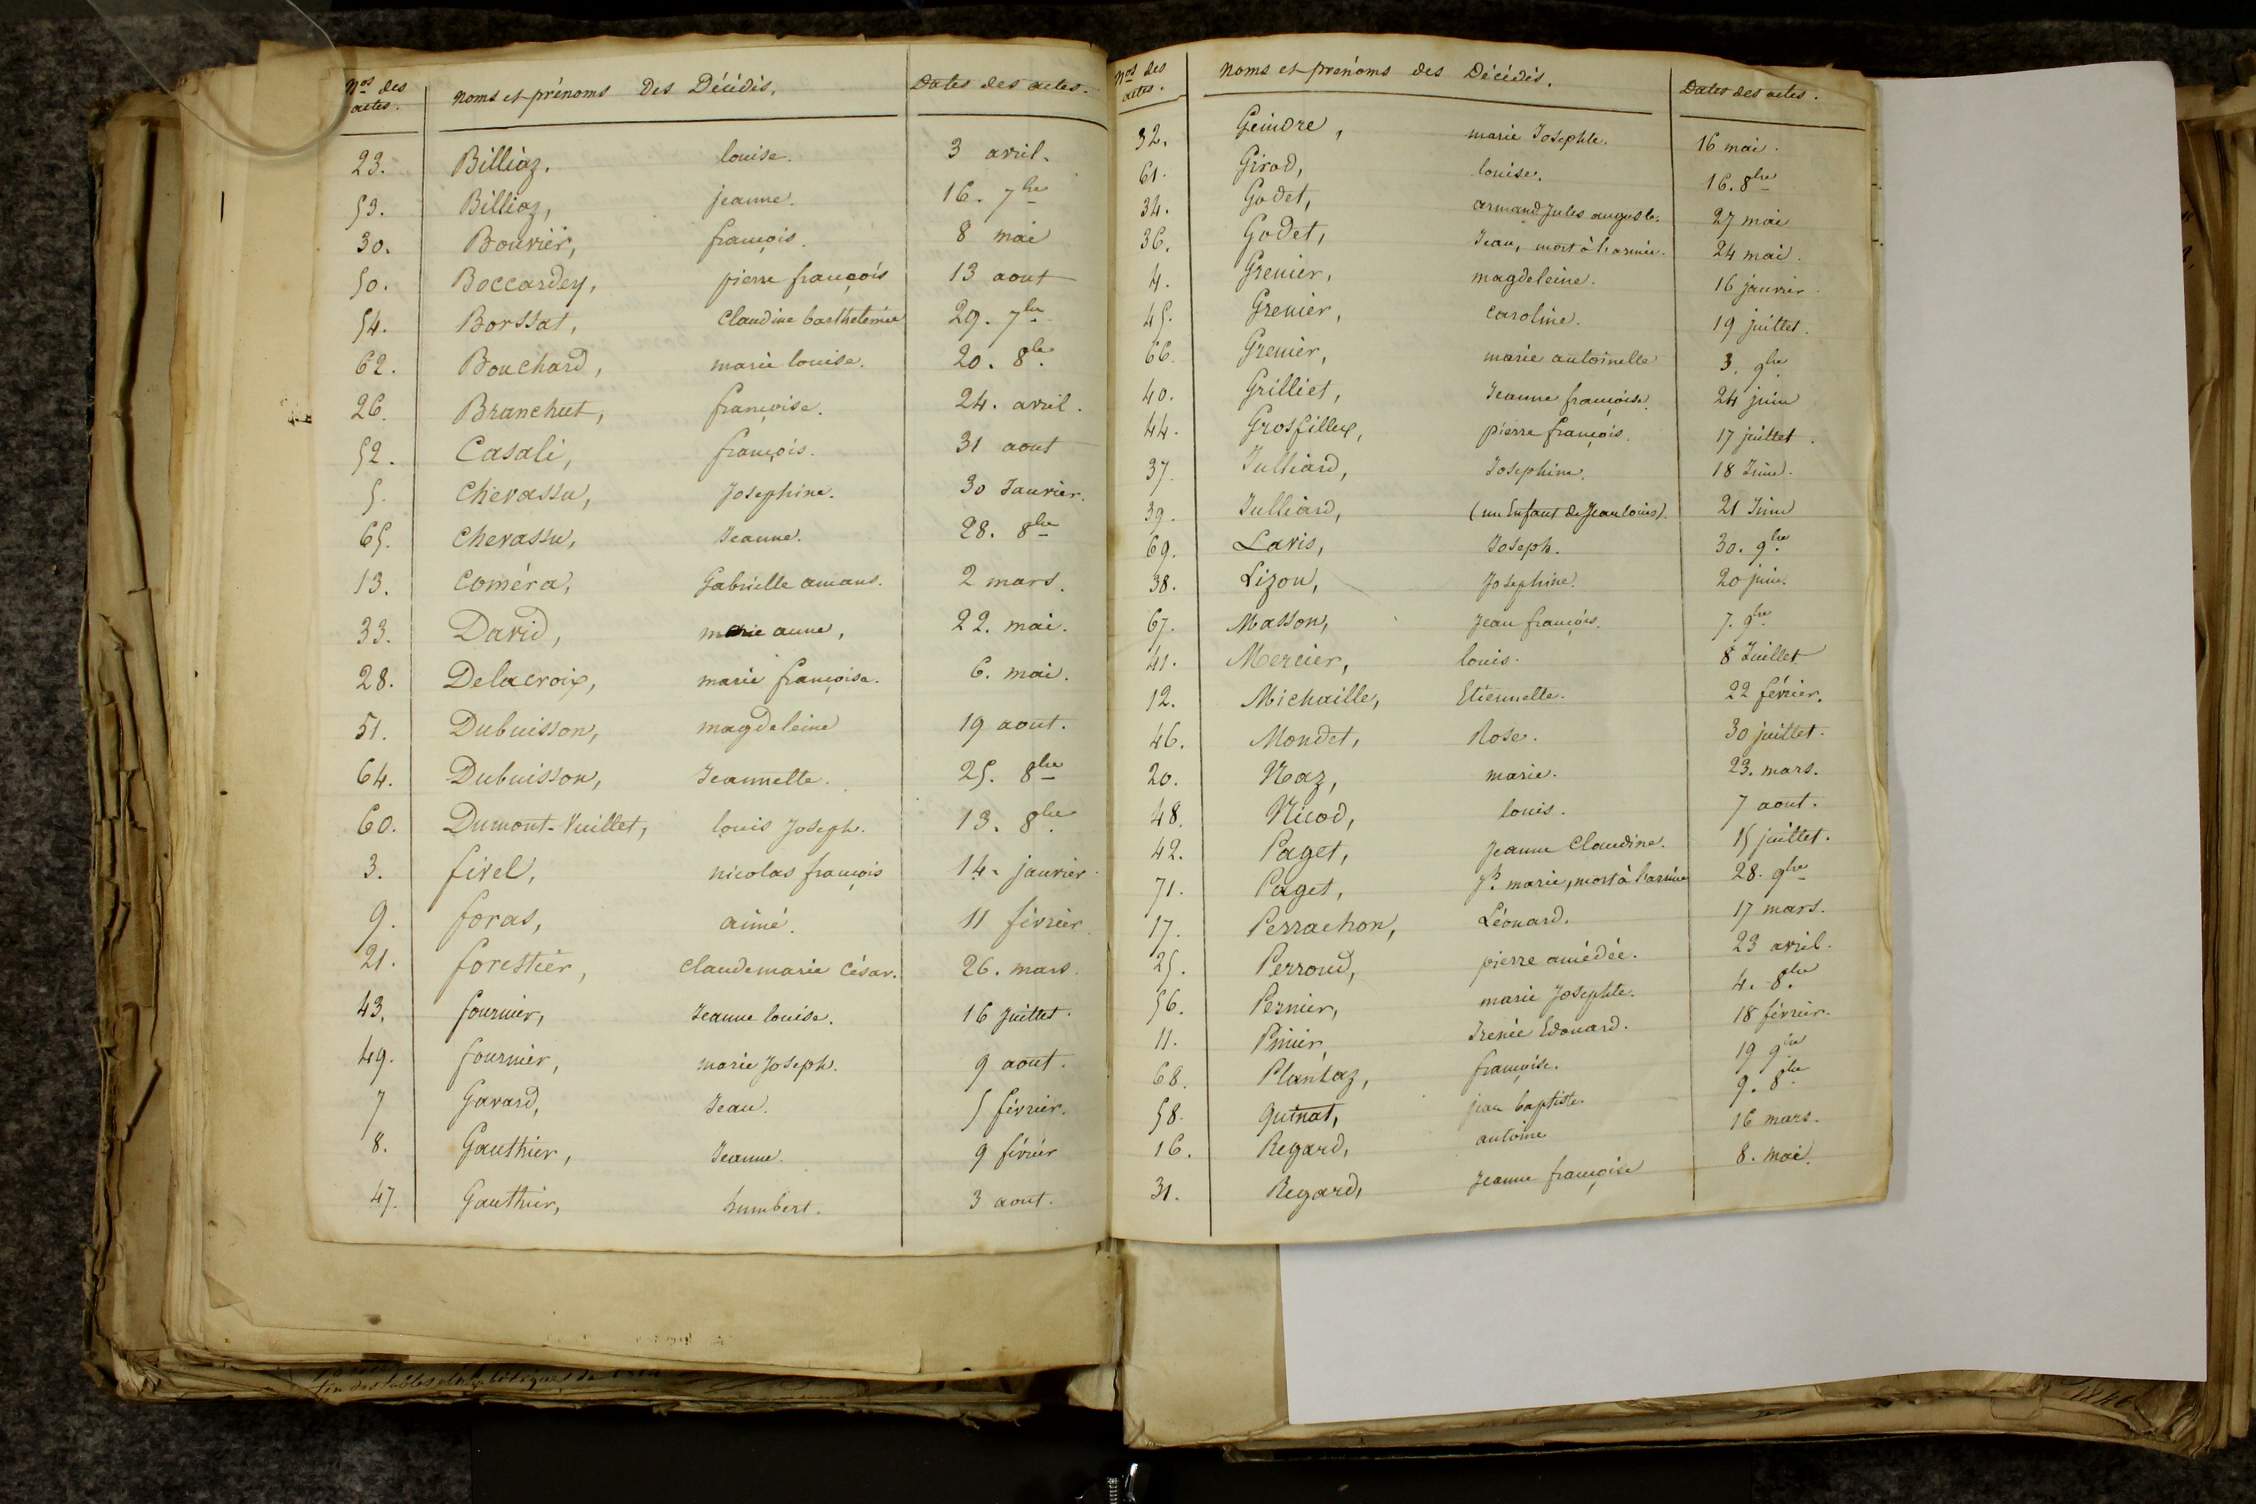 Nos des actes. Noms et prénoms des Décédés. Dates des actes.
23. Billiaz, louise. 3 avril.
53. Billiaz, jeanne. 16. 7bre
30. Bouvier, françois. 8 mai
50. Boccardey, pierre françois 13 aout
54. Borssat, Claudine barthelemie 29. 7bre
62. Bouchard, marie louise. 20. 8bre
26. Branchut, françoise. 24. avril.
52. Casali, françois. 31 aout
5. Chevassu, Josephine. 30 Janvier.
65. Chevassu, Jeanne. 28. 8bre
13. Coméra, Gabrielle amans. 2 mars.
33. David, marie anne, 22. mai.
28. Delacroix, marie françoise. 6. mai.
51. Dubuisson, magdeleine 19 aout.
64. Dubuisson, Jeannette. 25. 8bre
60. Dumont-Vuillet, louis Joseph. 13. 8bre
3. fivel, nicolas françois 14. janvier.
9. foras, aimé. 11 février.
21. forestier, Claude marie César. 26. mars.
43. fournier, Jeanne louise. 16 Juillet.
49. fournier, marie Joseph. 9 aout.
7 Gavard, Jean. 5 février.
8. Gauthier, Jeanne. 9 février
47. Gauthier, humbert. 3 aout.
fin des tables
Nos des actes. Noms et prénoms des Décédés. Dates des actes.
32. Geindre, marie Josephte. 16 mai.
61. Girod, louise. 16. 8bre
34. Godet, armand Jules auguste. 27 mai
36. Godet, Jean, mort à l'armée. 24 mai.
4. Grenier, magdeleine. 16 janvier.
45. Grenier, Caroline. 19 juillet.
66. Grenier, marie antoinette 3. 9bre
40. Grilliet, Jeanne françoise. 24 juin
44. Grosfillex, pierre françois. 17 juillet.
37. Julliard, Josephine. 18 Juin.
39. Julliard, (un Enfant de Jean louis). 21 Juin
69. Lavis, Joseph. 30. 9bre
38. Lizon, Josephine. 20 juin.
67. Masson, Jean françois. 7. 9bre
41. Mercier, louis. 8 Juillet
12. Michaille, Etiennette. 22 février.
46. Mondet, Rose. 30 juillet.
20. Naz, marie. 23. mars.
48. Nicod, louis. 7 aout.
42. Paget, Jeanne Claudine. 15 juillet.
71. Paget, Jh. marie, mort à l'armée 28. 9bre
17. Perrachon, Léonard. 17 mars.
25. Perroud, pierre amédée. 23 avril.
56. Pernier, marie Josephte. 4. 8bre
11. Pinier, Irenée Edouard. 18 février.
68. Plantaz, françoise. 19 9bre
58. Quinat, jean baptiste. 9. 8bre
16. Regard, antoine 16 mars.
31. Regard, Jeanne françoise 8. mai.